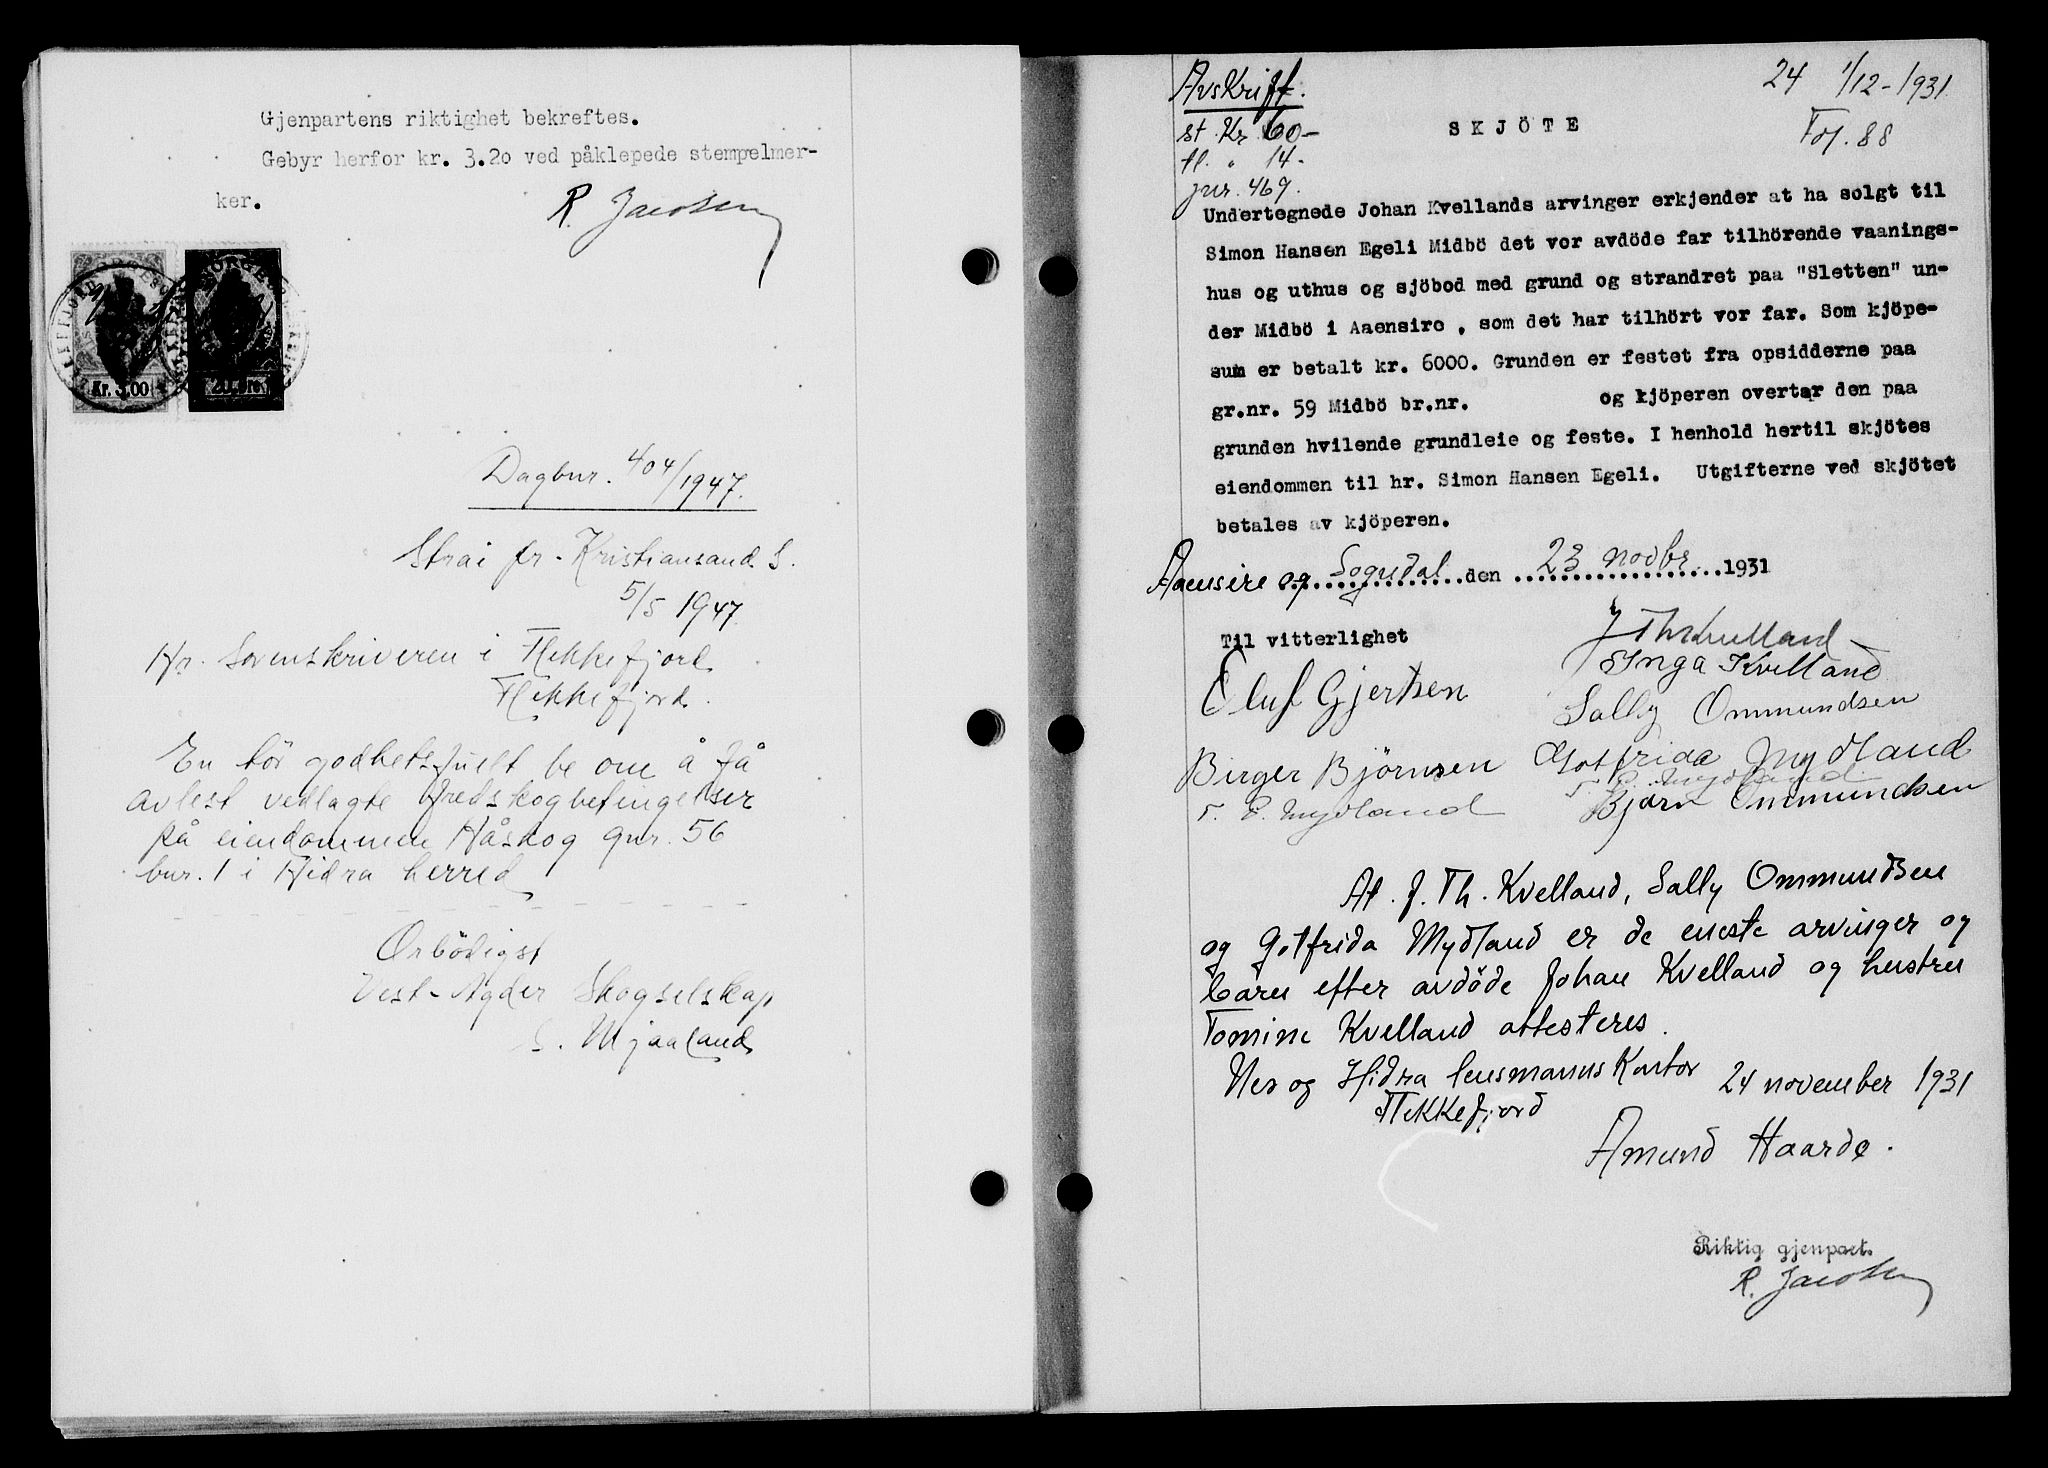 Gjenpartens riktighet bekreftes.
Gebyr herfor kr. 3.20 ved påklepede stempelmer-
ker.
R. Jacobsen
Kr. 3.00
20 øre
Dagbnr. 404/1947.
Strai pr. Kristiansand S.
5/5 1947
Hr. Sorenskriveren i Flekkefjord
Flekkefjord.
En tør godhetsfullt be om å få
avlest vedlagte fredskogbetingelser
på eiendommen Håskog gnr. 56
bnr. 1 i Hidra herred
Ærbödigst
Vest-Agder Skogselskap
S. Mjaaland
Avskrift.
st. Kr. 60-
tl. " 14-
jnr. 469.
24 1/12-1931
Fol. 88
SKJÖTE
Undertegnede Johan Kvellands arvinger erkjender at ha solgt til
Simon Hansen Egeli Midbö det vor avdöde far tilhörende vaanings-
hus og uthus og sjöbod med grund og strandret paa "Sletten" un-
der Midbö i Aaensire , som det har tilhört vor far. Som kjöpe-
sum er betalt kr. 6000. Grunden er festet fra opsidderne paa
gr.nr. 59 Midbö br.nr. og kjöperen overtar den paa
grunden hvilende grundleie og feste. I henhold hertil skjötes
eiendommen til hr. Simon Hansen Egeli. Utgifterne ved skjötet
betales av kjöperen.
Aaensire og Sogndal den 23 novbr 1931
Til vitterlighet
J Th Kvelland
Inga Kvelland
Oluf Gjertsen
Sally Ommundsen
Birger Björnsen Gotfrida Mydland
T. E. Mydland
T. E. Mydland
Björn Ommundsen
At J. Th. Kvelland, Sally Ommundsen
og Gotfrida Mydland er de eneste arvinger og
barn efter avdöde Johan Kvelland og hustru
Tomine Kvelland attesteres.
Nes og Hidra lensmannskontor 24 november 1931
Flekkefjord
Amund Haarde.
Riktig gjenpart.
R. Jacobsen